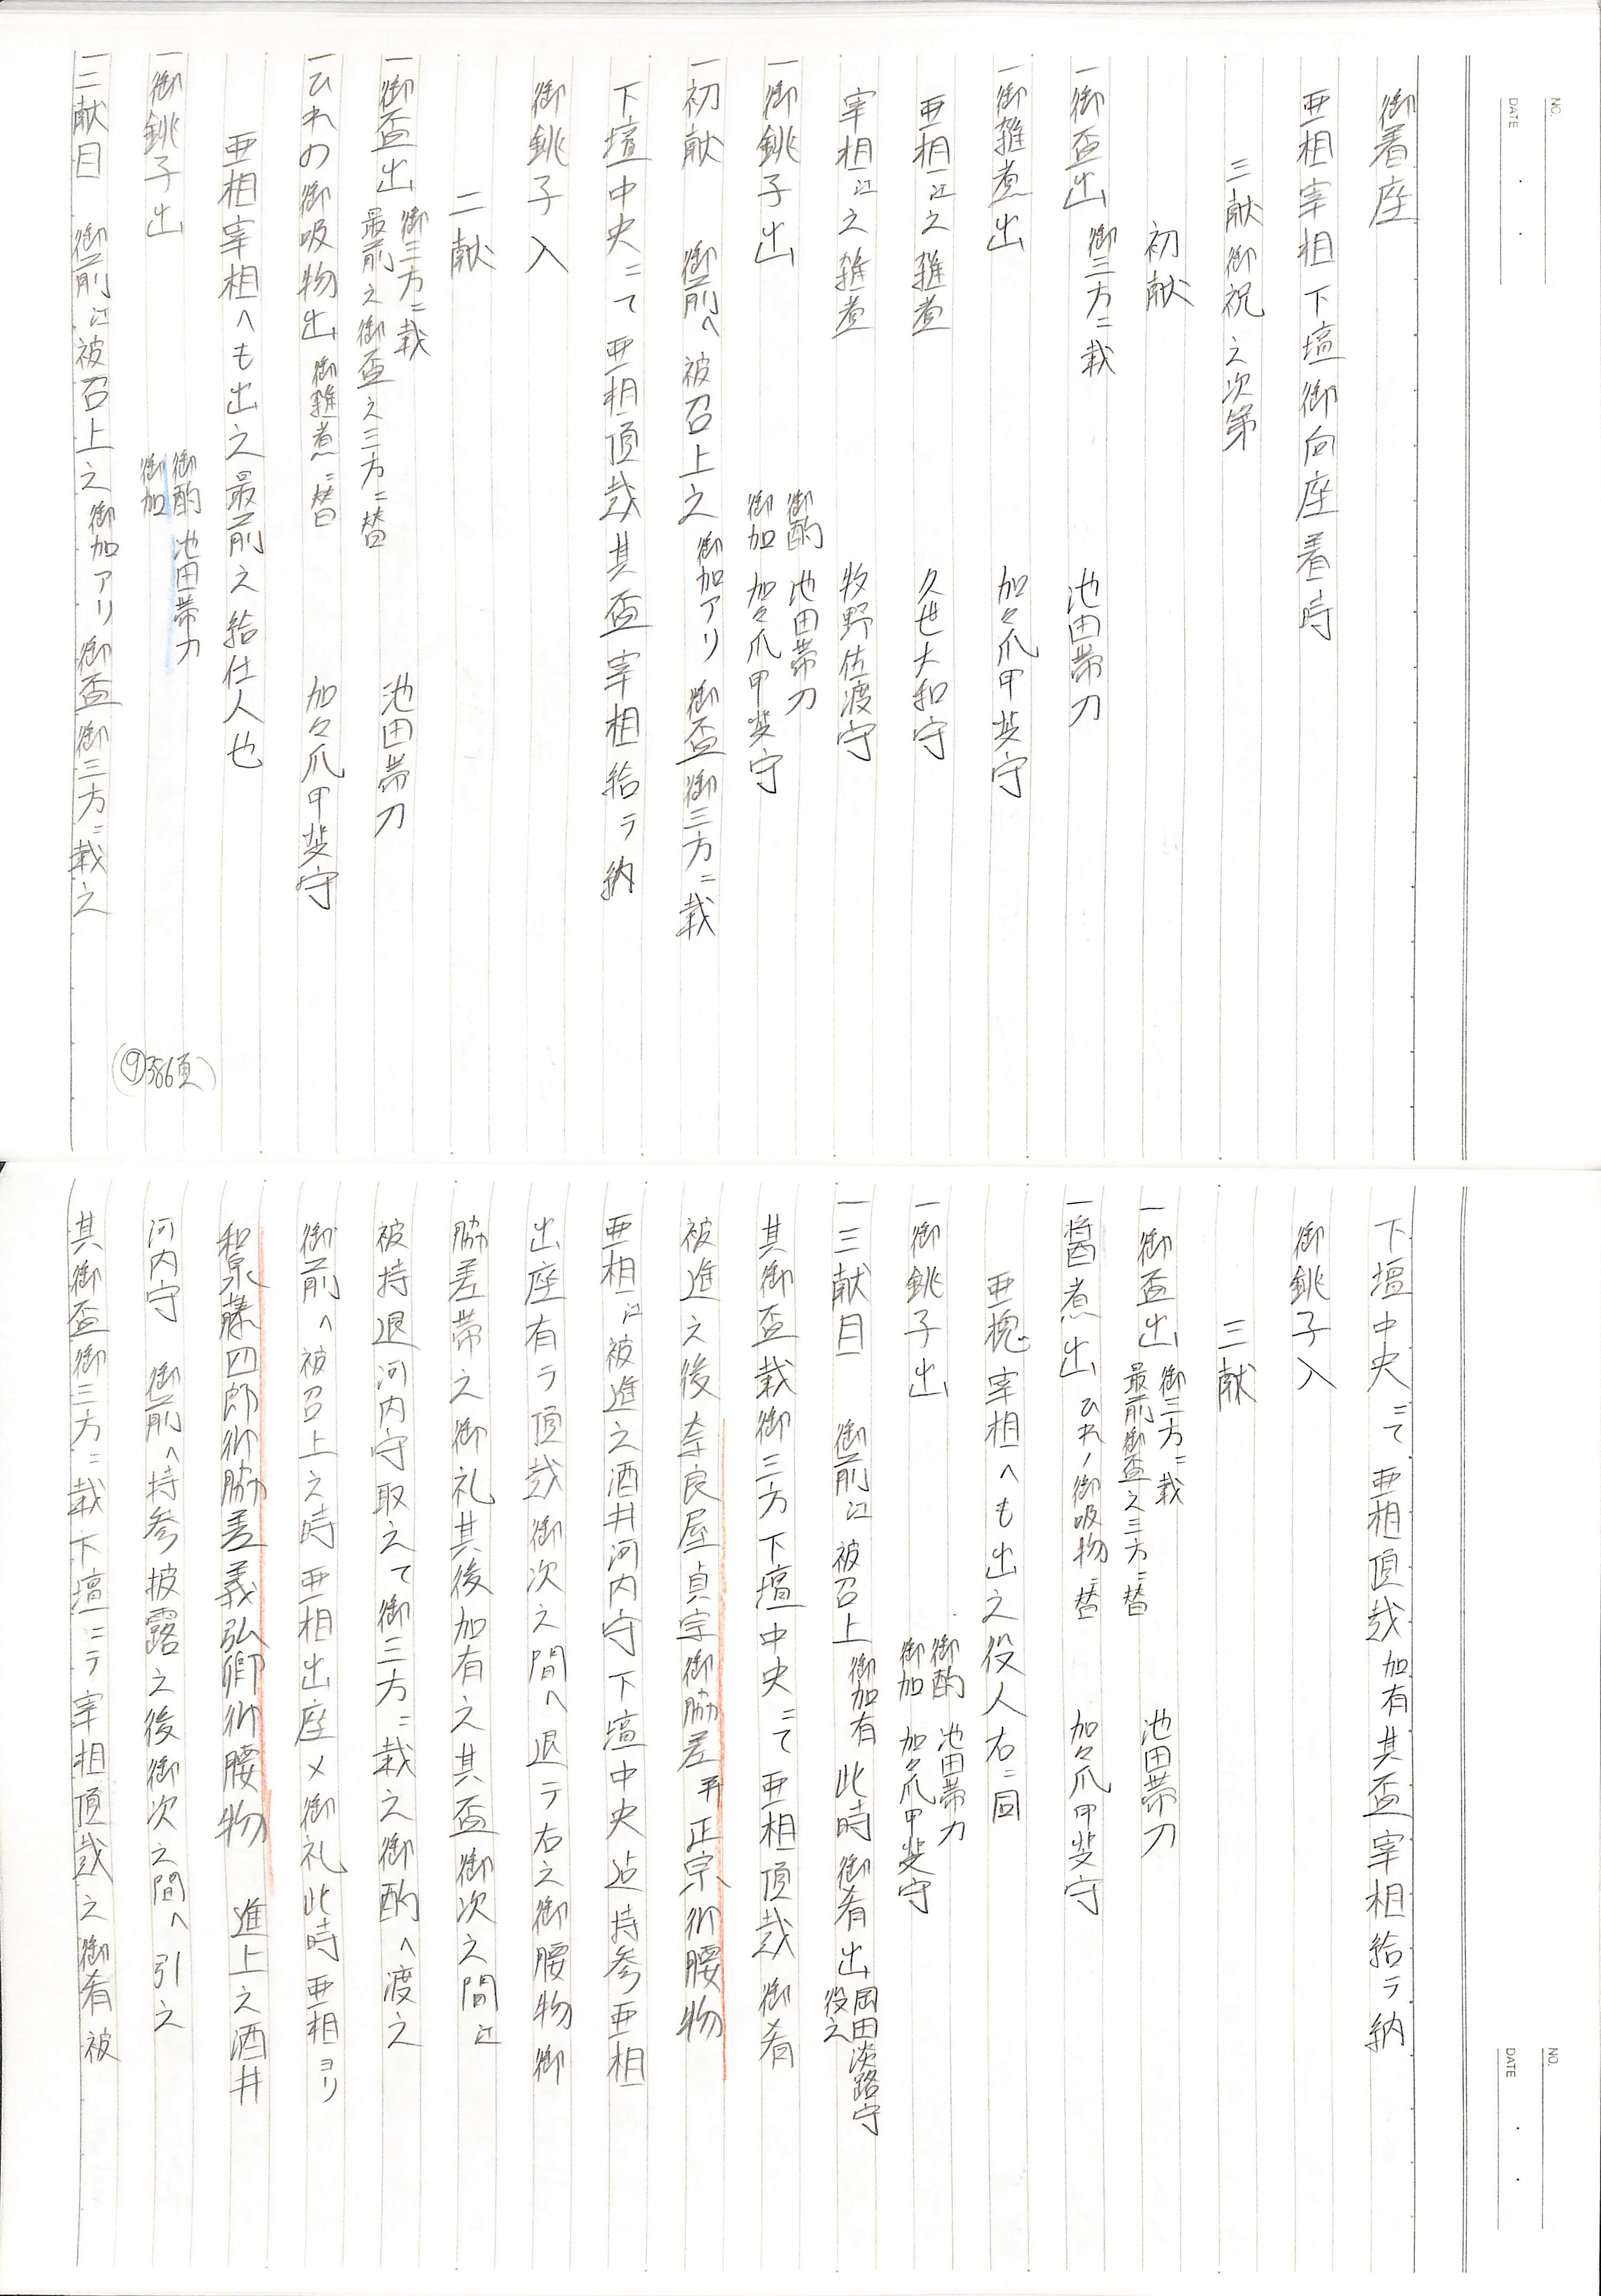 NO.
DATE
御着座
亜相宰相下壇御向座着時
三献御祝之次第
初献
一御盃出 御三方ニ載 池田帯刀
一御雑煮出 加々爪甲斐守
亜相江之雑煮 久世大和守
宰相江之雑煮 牧野佐渡守
一御銚子出 御酌 池田帯刀
御加 加々爪甲斐守
一初献 御前へ被召上之 御加アリ 御盃御三方ニ載
下壇中央ニて亜相頂戴其盃宰相給テ納
御銚子入
二献
一御盃出 御三方ニ載
最前之御盃之三方ニ替 池田帯刀
一ひれの御吸物出 御雑煮ニ替 加々爪甲斐守
亜相宰相へも出之最前之給仕人也
一御銚子出 御酌 池田帯刀
御加
一二献目 御前江被召上之御加アリ御盃御三方ニ載之
(⑨386頁)
NO.
DATE
下壇中央ニて亜相頂戴加有其盃宰相給テ納
御銚子入
三献
一御盃出 御三方ニ載
最前御盃之三方ニ替 池田帯刀
一醤煮出 ひれノ御吸物ニ替 加々爪甲斐守
亜槐宰相へも出之役人右ニ同
一御銚子出 御酌 池田帯刀
御加 加々爪甲斐守
一三献目 御前江被召上 御加有 此時御肴出 岡田淡路守
役之
其御盃載御三方下壇中央ニて亜相頂戴御肴
被進之後奈良屋貞宗御脇差并正宗御腰物
亜相江被進之酒井河内守下壇中央迄持参亜相
出座有テ頂戴御次之間へ退テ右之御腰物御
脇差帯之御礼其後加有之其盃御次之間江
被持退河内守取之て御三方ニ載之御酌へ渡之
御前へ被召上之時亜相出座〆御礼此時亜相ヨリ
和泉藤四郎御脇差義弘郷御腰物 進上之酒井
河内守 御前へ持参披露之後御次之間へ引之
其御盃御三方ニ載下壇ニテ宰相頂戴之御肴被